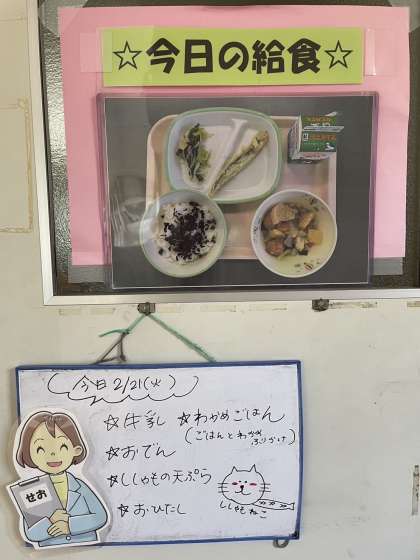 ☆今日の給食☆
今日 2/21(火)
☆牛乳 ☆わかめごはん
(ごはんとわかめ
ふりかけ)
☆おでん
☆ししゃもの天ぷら
☆おひたし
ししゃもねこ
せお